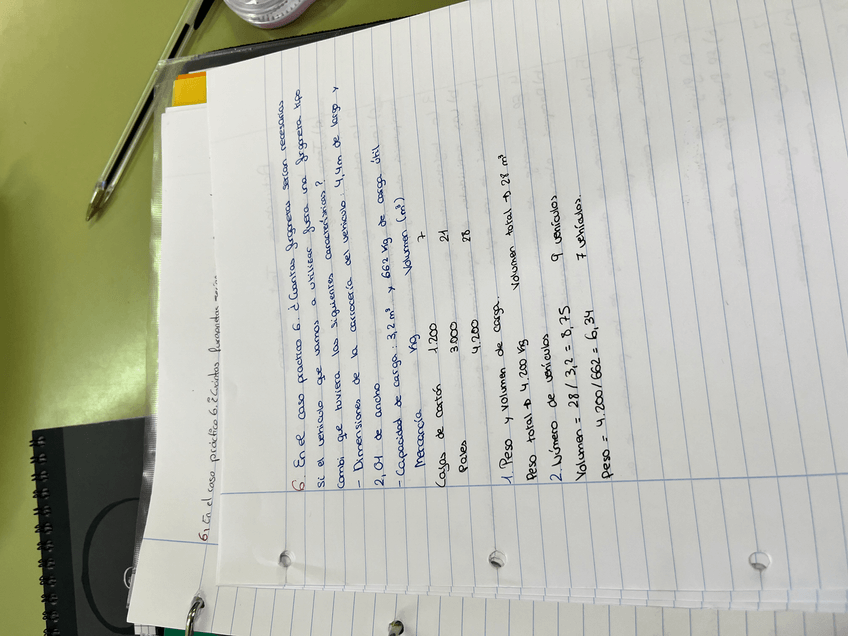 6. En el caso práctico 6. ¿Cuántas furgonetas serían necesarias
si el vehículo que vamos a utilizar fuera una furgoneta tipo
combi que tuviera las siguientes características?
- Dimensiones de la carrocería del vehículo: 4,4m de largo y
2,01 de ancho
- Capacidad de carga: 3,2 m³ y 662 kg de carga útil
Mercancía Kg Volumen (m³)
Cajas de cartón 1.200 7
Palés 3.000 21
4.200 28
1. Peso y volumen de carga.
Peso total → 4.200 Kg Volumen total → 28 m³
2. Número de vehículos
Volumen = 28 / 3,2 = 8,75 9 vehículos
Peso = 4.200/662 = 6,34 7 vehículos.
6. En el caso práctico 6. ¿Cuántas furgonetas